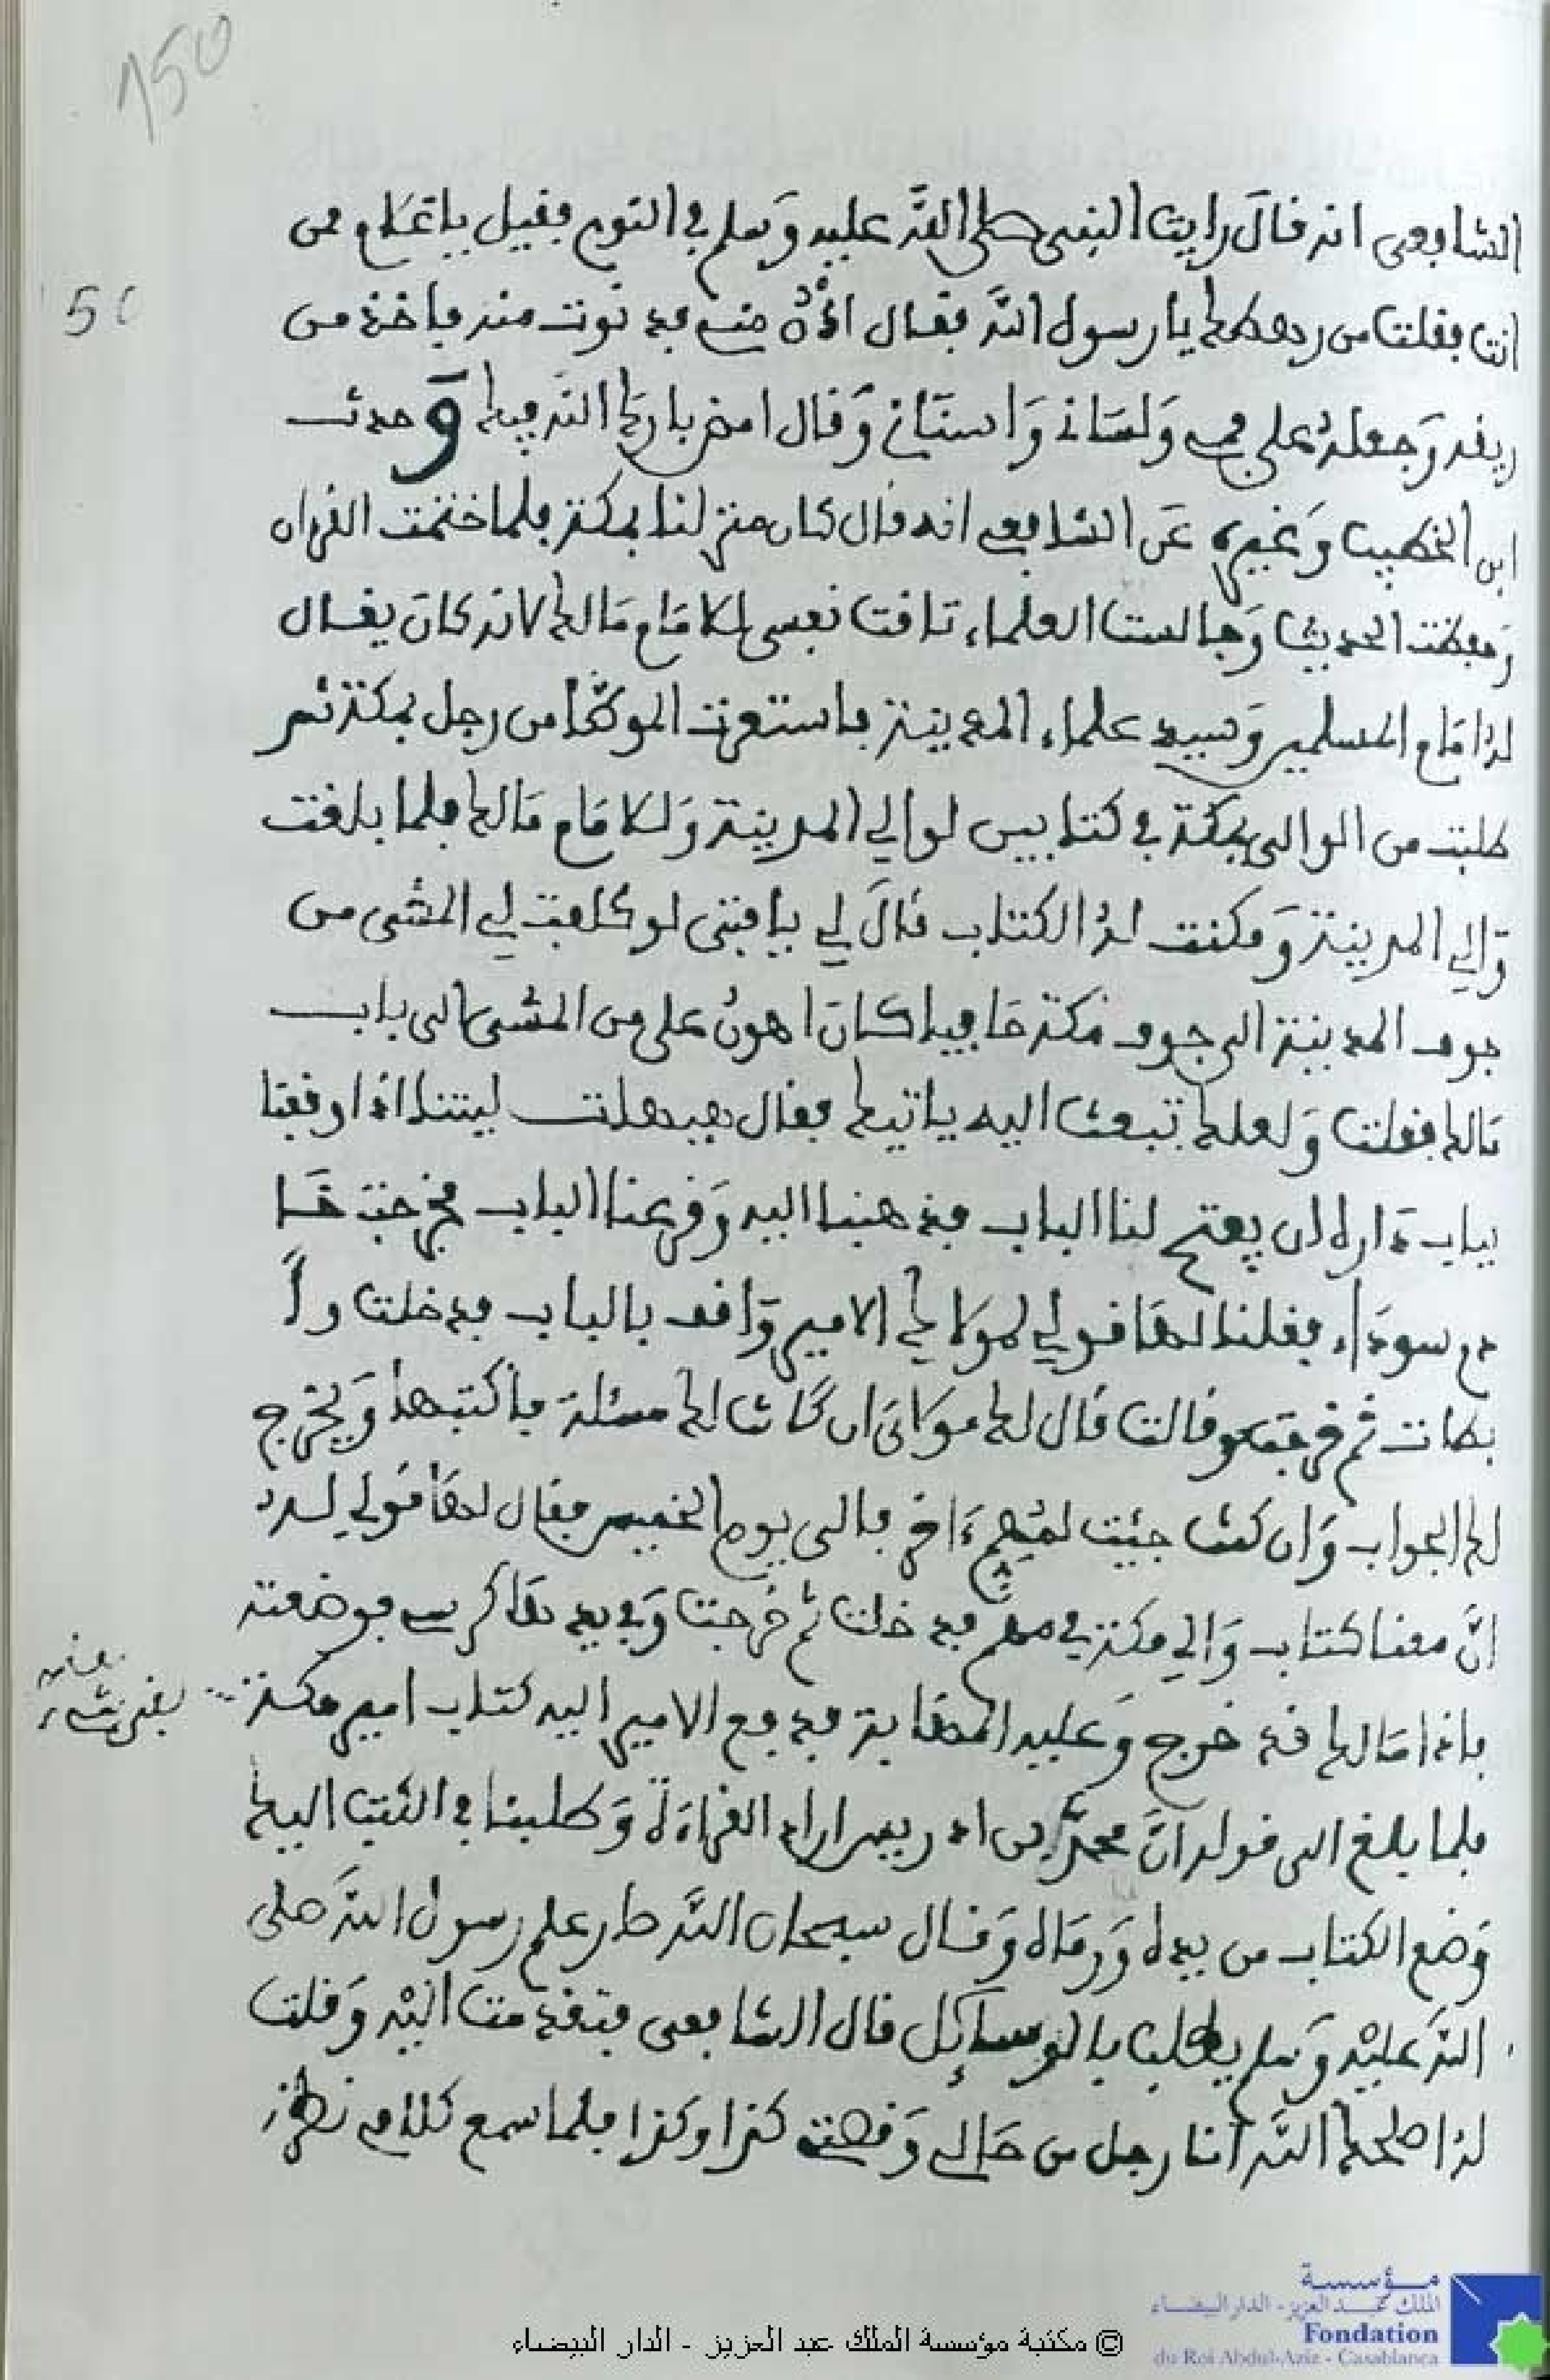 150
الشافعي انه قال رايت النبي صلى الله عليه وسلم في النوم فقيل يا غلام ممن
50
انت فقلت من رهطك يا رسول الله فقال ادن مني فدنوت منه فاخذ من
ريقه وجعله على فمي ولساني واسناني وقال امض بارك الله فيك وحدث
ابن الخطيب وغيره عن الشافعي انه قال كان منزلنا بمكة فلما ختمت القران
وحفظت الحديث وجالست العلماء تاقت نفسي للامام مالك لانه كان يقال
له امام المسلمين وسيد علماء المدينة فاستعرت الموطأ من رجل بمكة ثم
طلبت من الوالي بمكة في كتابين لوالي المدينة وللامام مالك فلما بلغت
والي المدينة ومكنت له الكتاب قال لي يا فتى لو كلفت لي المشي من
جوف المدينة الى جوف مكة حافيا كان اهون علي من المشي الى باب
مالك فقلت ولعلك تبعث اليه ياتيك فقال هيهات ليتنا اذا وقفنا
بباب داره ان يفتح لنا الباب فذهبنا اليه وقرعنا الباب فخرجت خا
دم سوداء فقلنا لها قولي لمولاك الامير واقف بالباب فدخلت وا
بطات ثم خرجت وقالت قال لك مولاي ان كانت لك مسئلة فاكتبها ويخرج
لك الجواب وان كنت جئت لمهم ءاخر فالى يوم الخميس فقال لها قولي له
ان معنا كتاب والي مكة في مهم فدخلت ثم خرجت وفي يدها كرسي فوضعته
فاذا مالك قد خرج وعليه المهابة فدفع الامير اليه كتاب امير مكة
فلما بلغ الى قوله ان محمد بن ادريس اراد القراءة وطلبنا في الكتب اليك
وضع الكتاب من يده ورماه وقال سبحان الله صار علم رسول الله صلى
الله عليه وسلم يطلب بالوسائل قال الشافعي فتقدمت اليه وقلت
له اصلحك الله انا رجل من حالي وقصتي كذا وكذا فلما سمع كلامي نظر
مؤسسة
الملك عبد العزيز - الدار البيضاء
Fondation
du Roi Abdul-Aziz - Casablanca
© مكتبة مؤسسة الملك عبد العزيز - الدار البيضاء